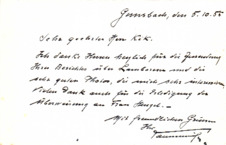 Gernsbach, den 5.10.55
Sehr geehrter Herr Kik.
Ich danke Ihnen herzlich für die Zusendung
Ihres Berichtes über Lambarene und die
sehr guten Photos, die mich sehr interessieren.
Vielen Dank auch für die Erledigung der
Überweisung an Frau
Mit freundlichen Grüssen
Ihr